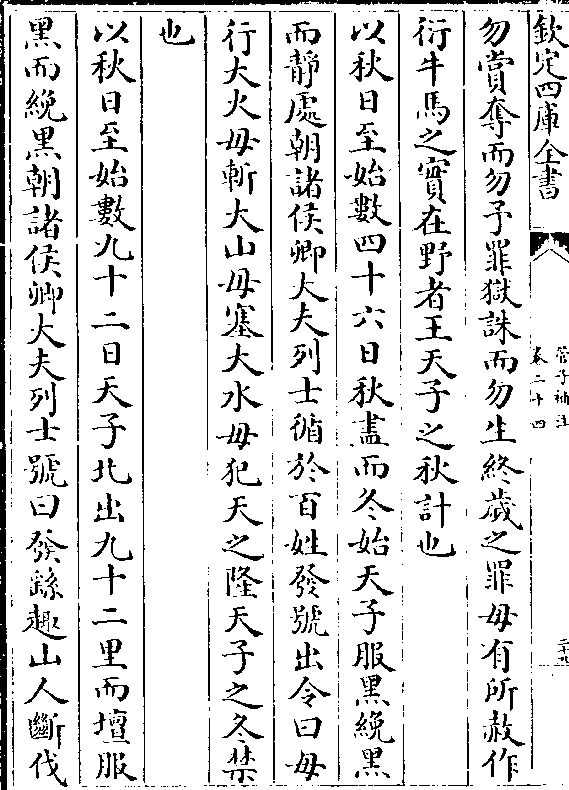 欽定四庫全書
管子補注
卷二十四
勿賞奪而勿予罪獄誅而勿生終歲之罪毋有所赦作
衍牛馬之實在野者王天子之秋計也
以秋日至始數四十六日秋盡而冬始天子服黑絻黑
而靜處朝諸侯卿大夫列士循於百姓發號出令曰毋
行大火毋斬大山毋塞大水毋犯天之隆天子之冬禁
也
以秋日至始數九十二日天子北出九十二里而壇服
黑而絻黑朝諸侯卿大夫列士號曰發繇趣山人斷伐